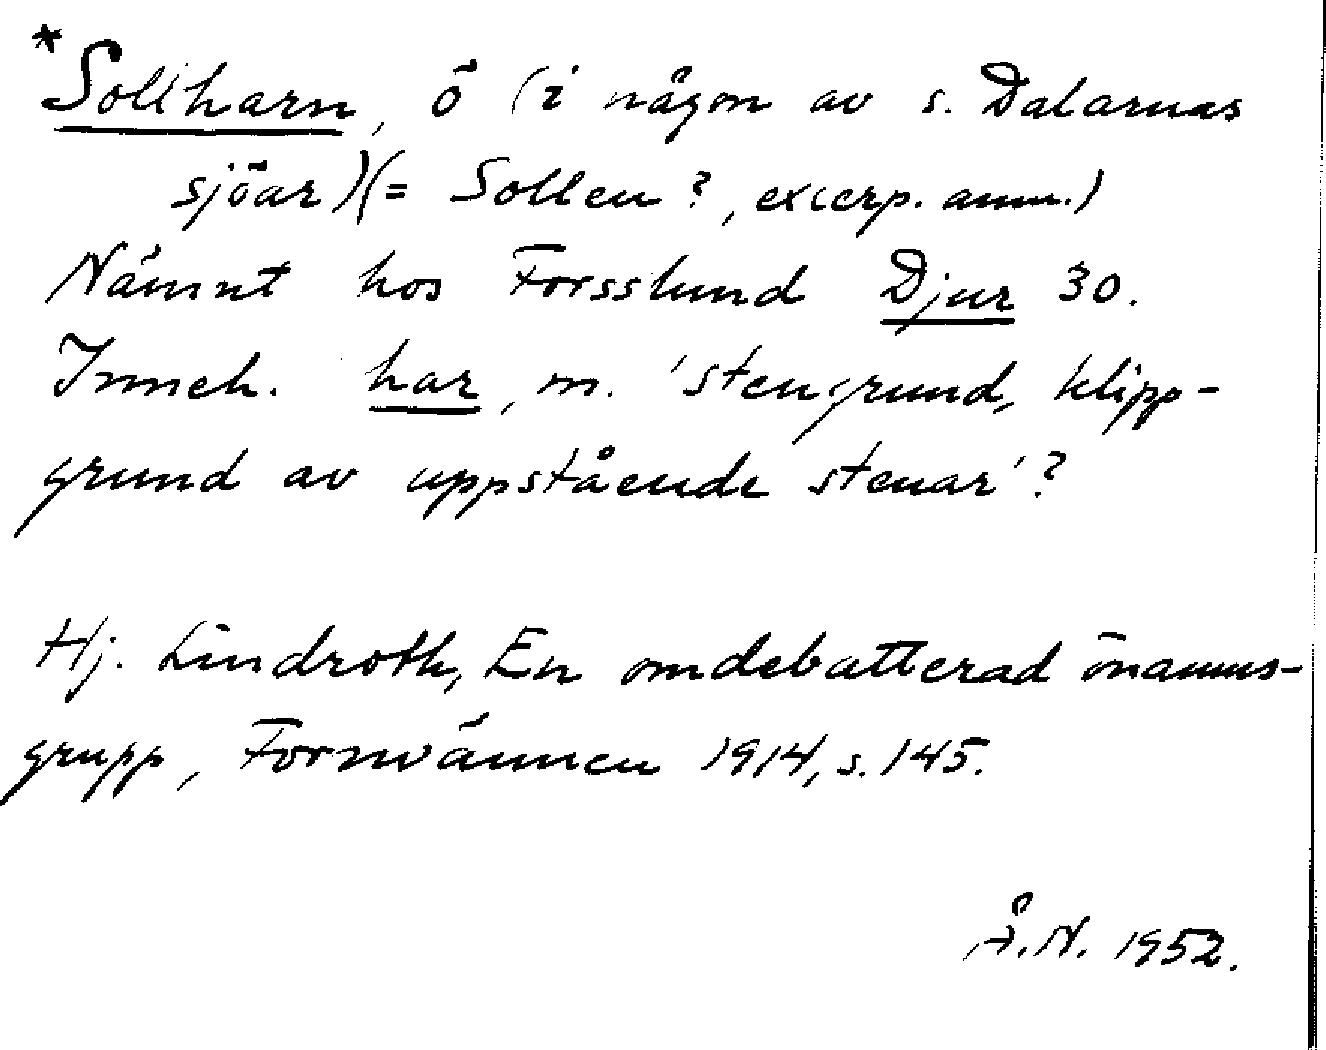 *Sollharn, ö (i någon av s. Dalarnas
sjöar) (= Sollen?, excerp. anm.)
Nämnt hos Forsslund Djur 30.
Inneh. har, m. 'stengrund, klipp-
grund av uppstående stenar'?
Hj. Lindroth, En omdebatterad önamns-
grupp, Fornvännen 1914, s. 145.
Å.N. 1952.